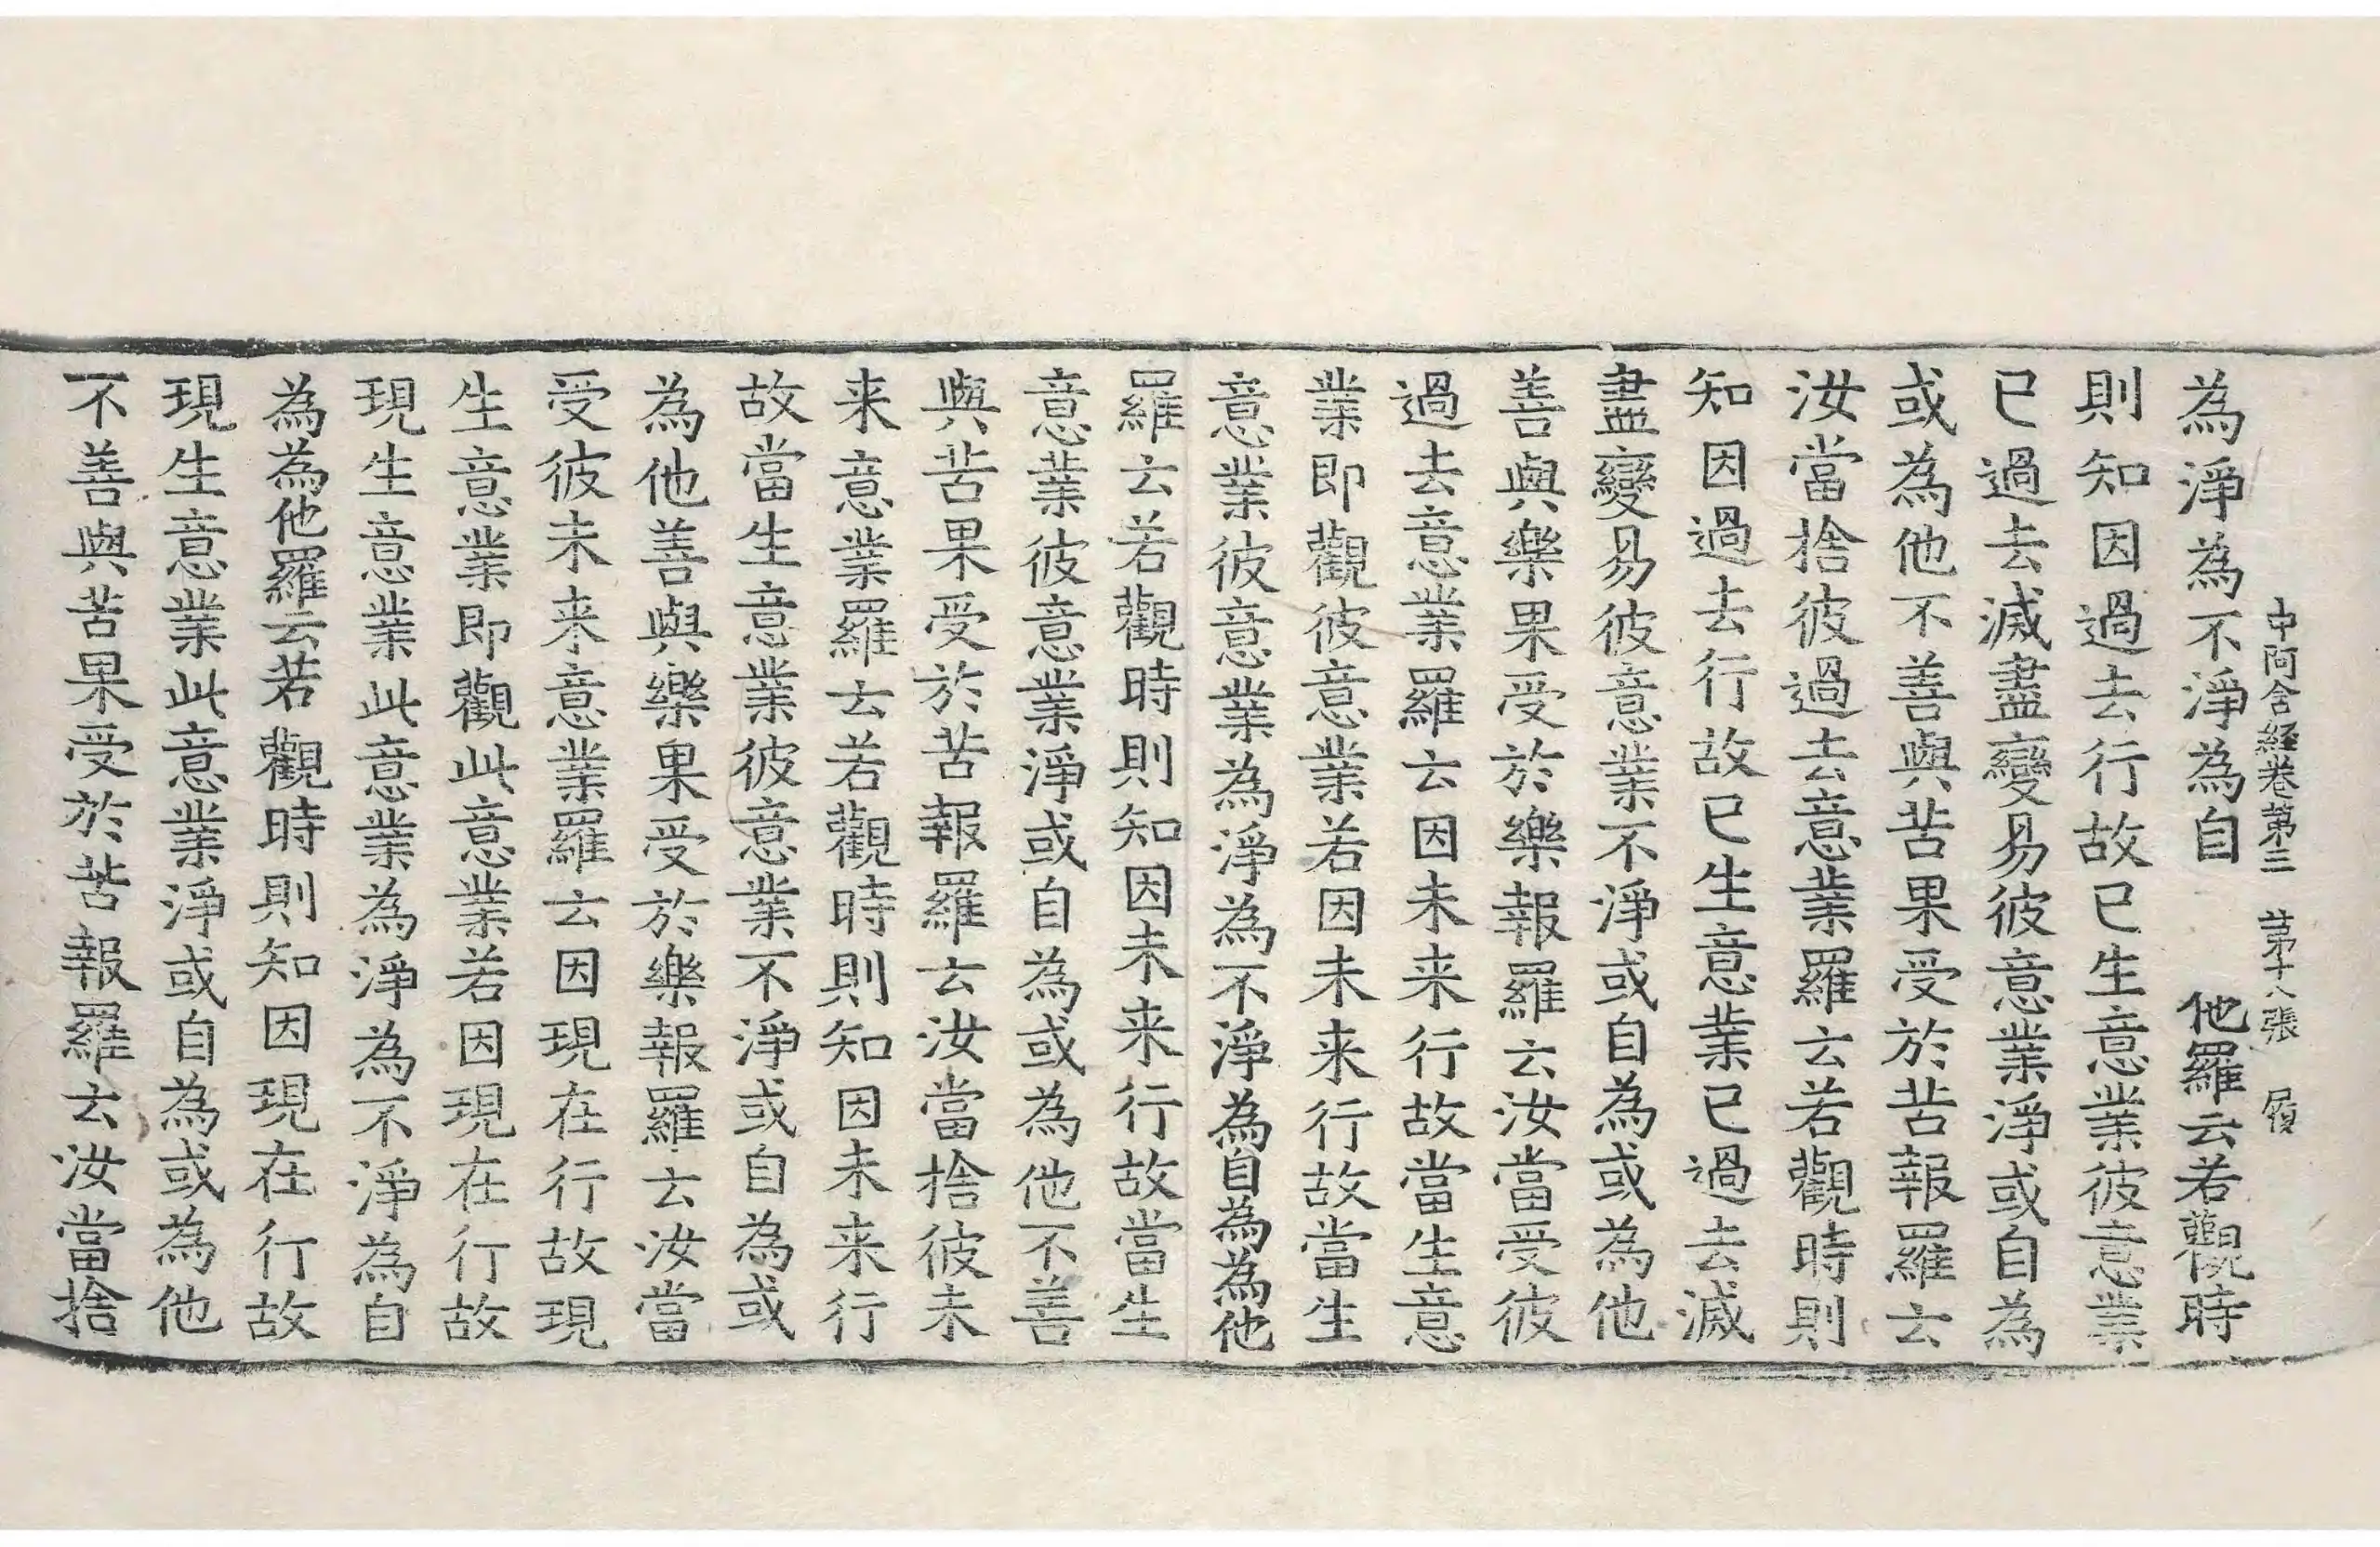 中阿含経卷第三 第十八張 履
為淨為不淨為自 他羅云若觀時
則知因過去行故已生意業彼意業
已過去滅盡變易彼意業淨或自為
或為他不善與苦果受於苦報羅云
汝當捨彼過去意業羅云若觀時則
知因過去行故已生意業已過去滅
盡變易彼意業不淨或自為或為他
善與樂果受於樂報羅云汝當受彼
過去意業羅云因未来行故當生意
業即觀彼意業若因未来行故當生
意業彼意業為淨為不淨為自為為他
羅云若觀時則知因未来行故當生
意業彼意業淨或自為或為他不善
與苦果受於苦報羅云汝當捨彼未
来意業羅云若觀時則知因未来行
故當生意業彼意業不淨或自為或
為他善與樂果受於樂報羅云汝當
受彼未来意業羅云因現在行故現
生意業即觀此意業若因現在行故
現生意業此意業為淨為不淨為自
為為他羅云若觀時則知因現在行故
現生意業此意業淨或自為或為他
不善與苦果受於苦報羅云汝當捨